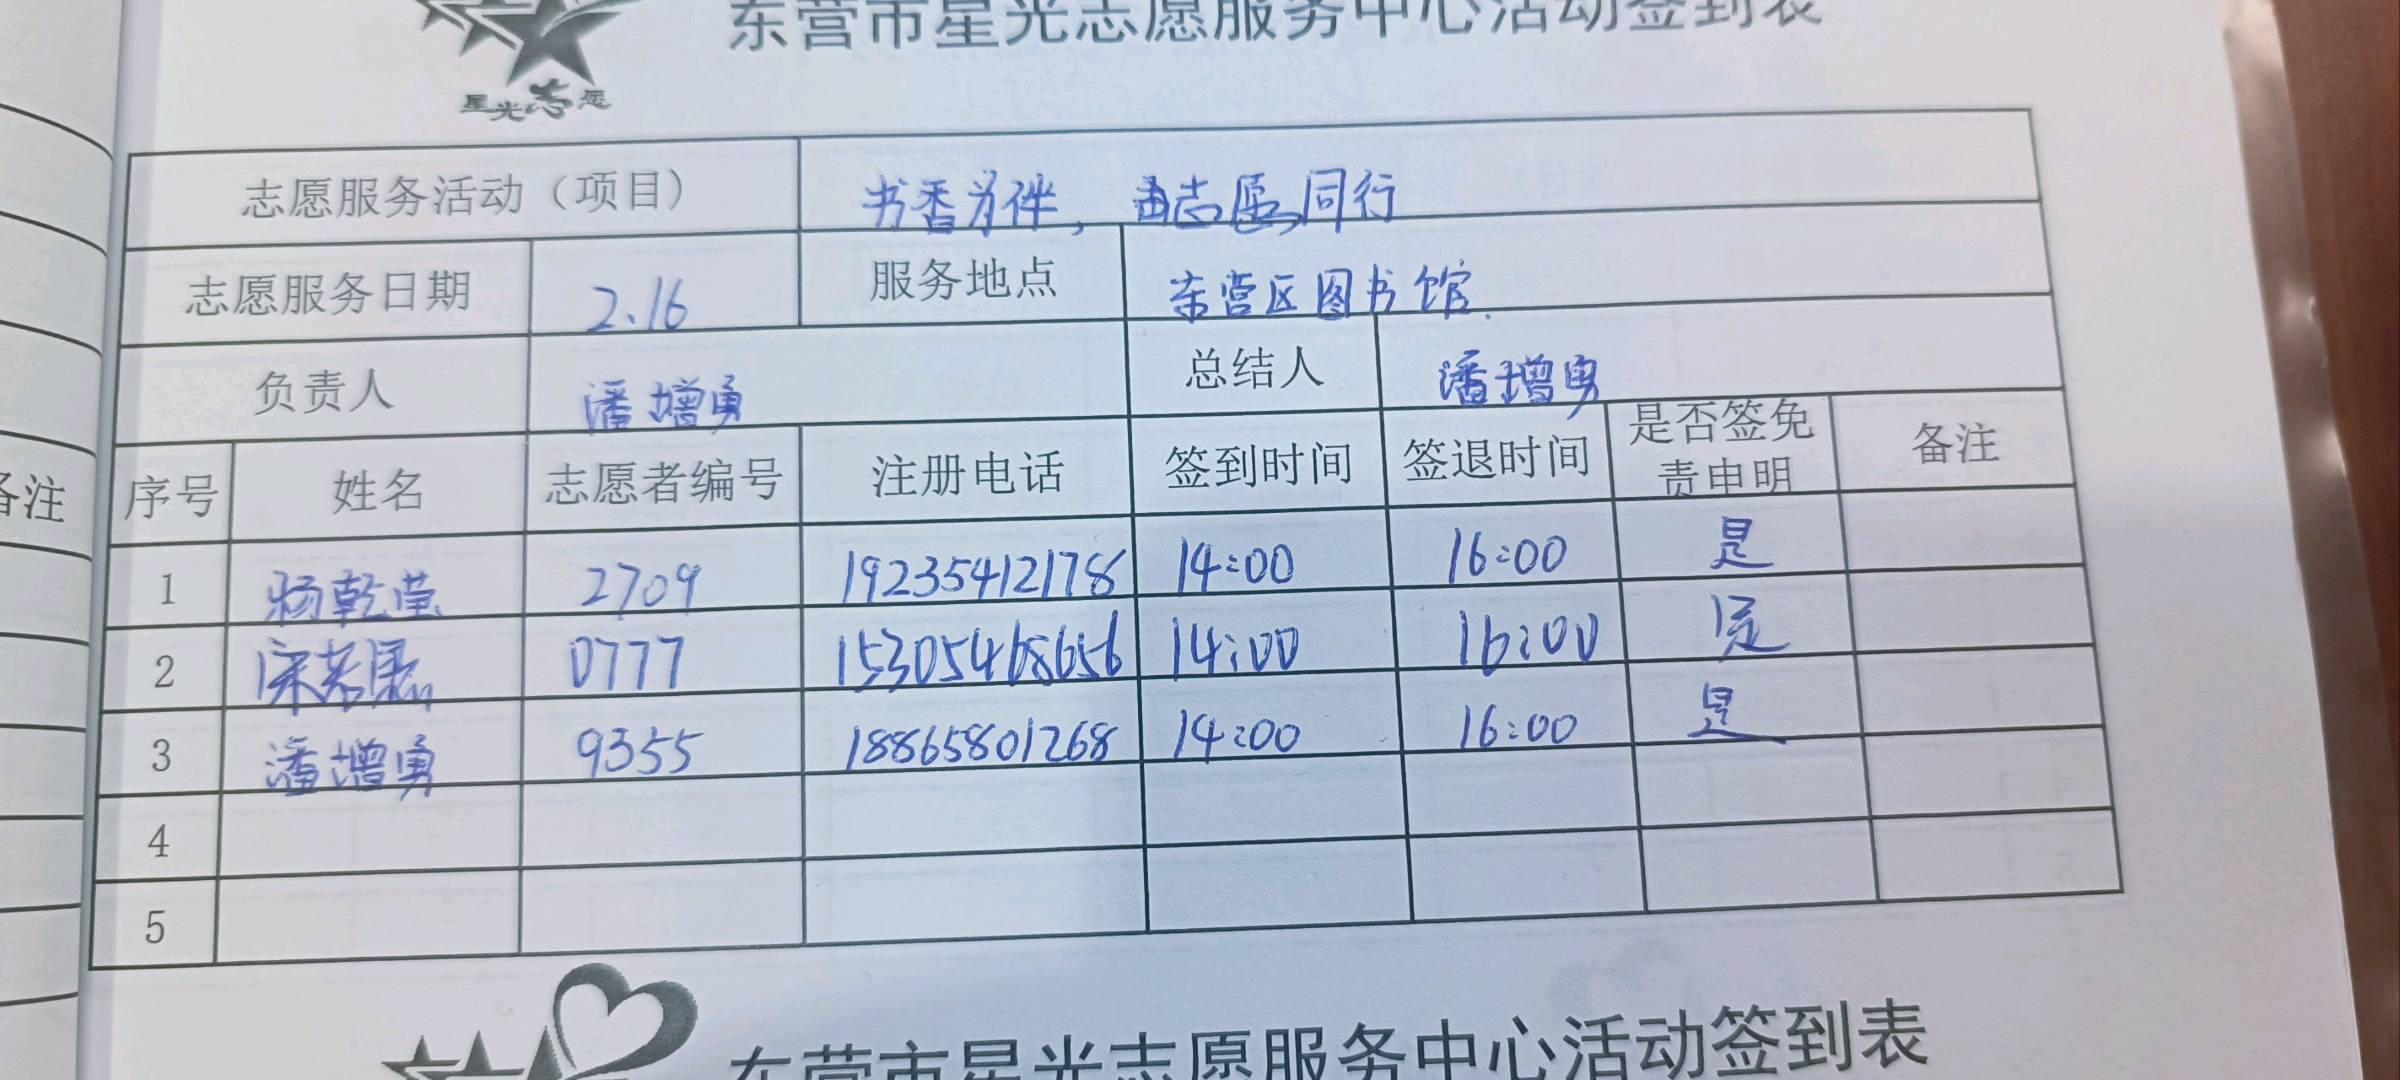 东营市星光志愿服务中心活动签到表
星光志愿
志愿服务活动（项目） 书香为伴，志愿同行
志愿服务日期 2.16 服务地点 东营区图书馆.
负责人 潘增勇 总结人 潘增勇
备注 序号 姓名 志愿者编号 注册电话 签到时间 签退时间 是否签免责申明 备注
1 杨乾莹 2709 192354121786 14:00 16:00 是
2 0777 15305468656 14:00 16:00 是
3 潘增勇 9355 18865801268 14:00 16:00 是
4
5
东营市星光志愿服务中心活动签到表